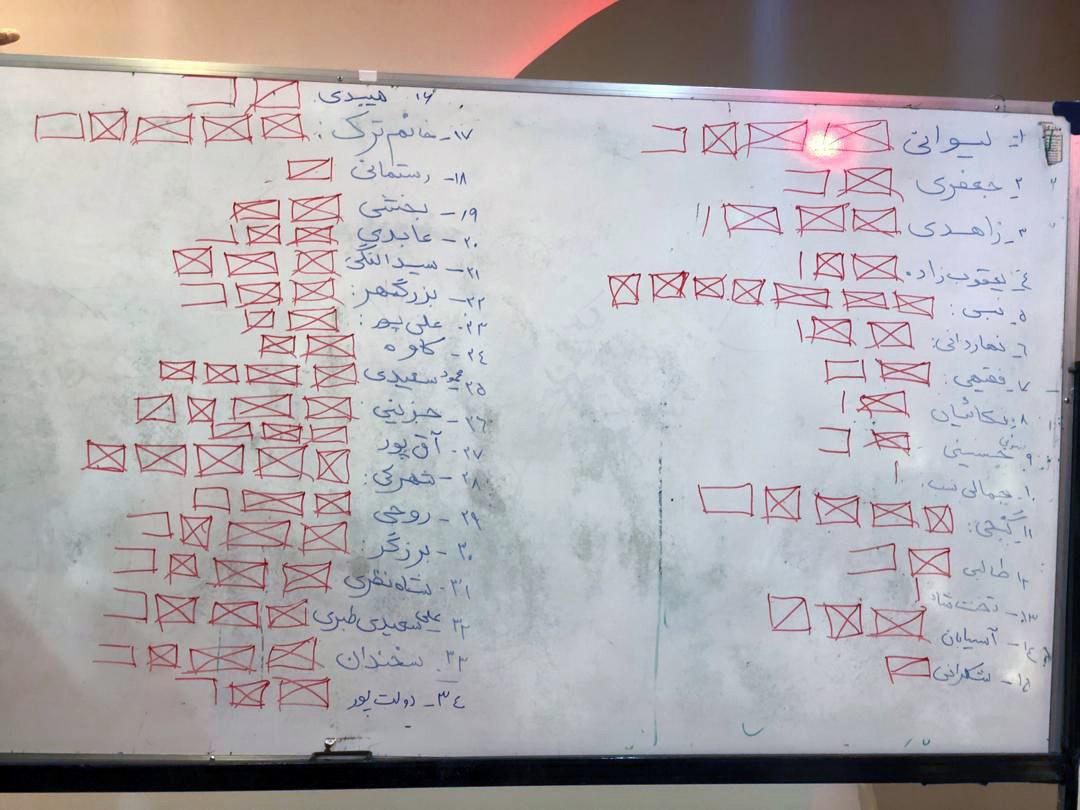 ۱- لیوانی
۲- جعفری
۳- زاهدی
٤- یعقوب زاده
۵- نبی:
٦- نهاردانی:
۷- فقیهی:
۸- یکائیان
۹- حسینی
۱۰- جمالی نسب
۱۱- گنجی:
۱۲- طالبی
۱۳- تخت شاد
۱٤- آسیابان
۱۵- شکرانی
۱۶- میبدی
۱۷- خانم ترک:
۱۸- رستمانی
۱۹- بخشی
۲۰- عابدی
۲۱- سیدالنگی
۲۲- بزرگمهر:
۲۳- علی پور:
۲٤- کاوه
۲۵- محمود سعیدی
۲۶- حزینی:
۲۷- آق پور
۲۸- شهرکی:
۲۹- روحی
۳۰- برزگر
۳۱- شاه نظری
۳۲- علی سعیدی طبری
۳۳- سخندان
۳٤- دولت پور